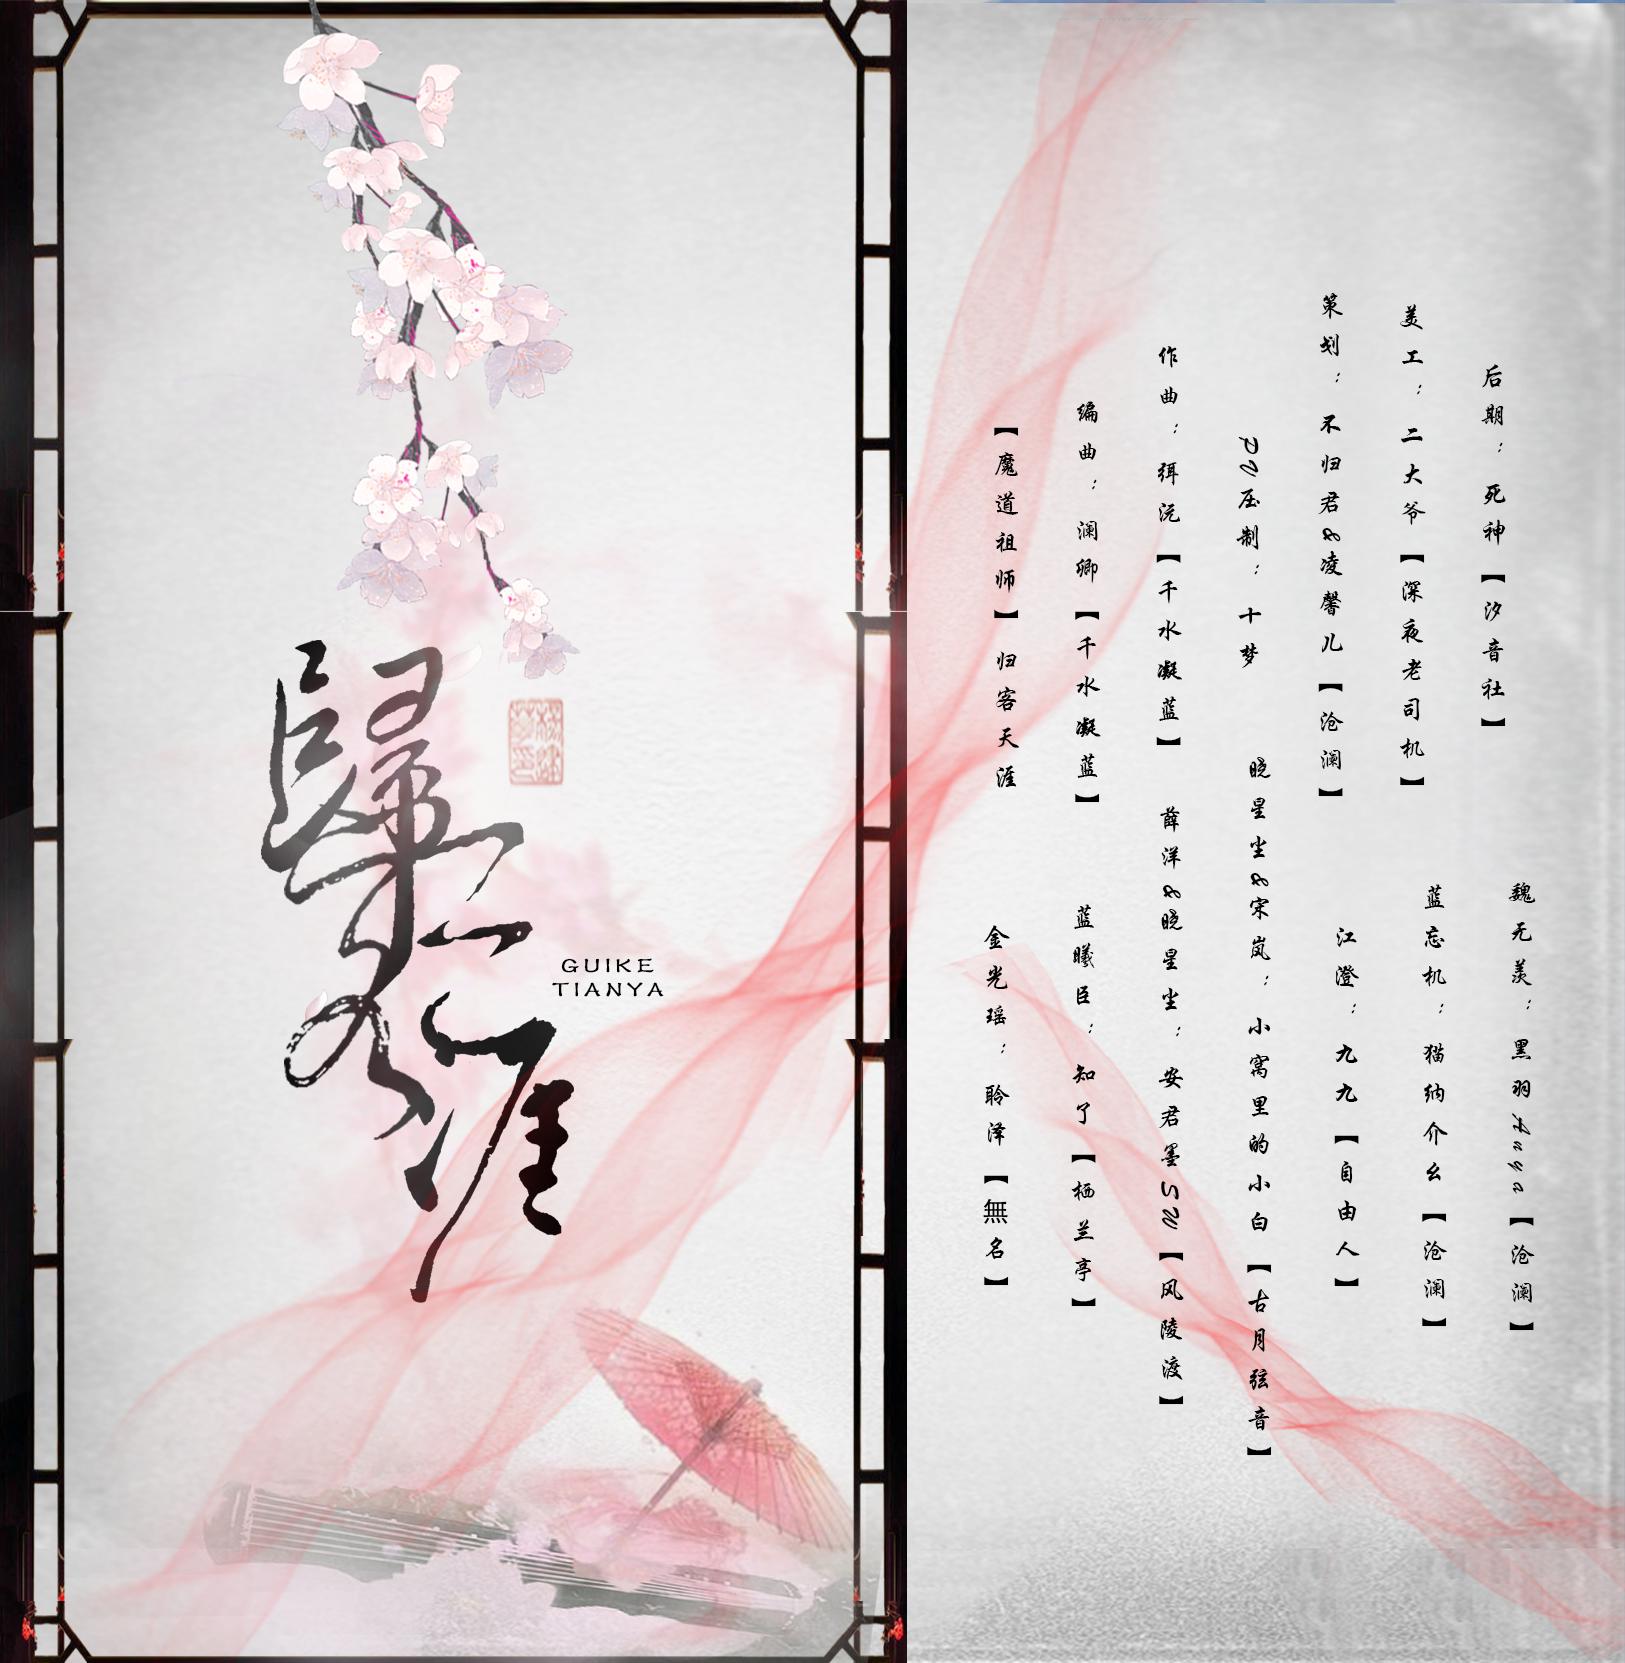 歸客天涯
GUIKE
TIANYA
【魔道祖师】归客天涯
编曲：澜卿【千水凝蓝】
作曲：弭沅【千水凝蓝】
PV压制：十梦
策划：不归君&凌馨儿【沧澜】
美工：二大爷【深夜老司机】
后期：死神【汐音社】
金光瑶：聆泽【無名】
蓝曦臣：知了【栖兰亭】
薛洋&晓星尘：安君墨SW【风陵渡】
晓星尘&宋岚：小窝里的小白【古月弦音】
江澄：九九【自由人】
蓝忘机：猫纳介幺【沧澜】
魏无羡：黑羽【沧澜】